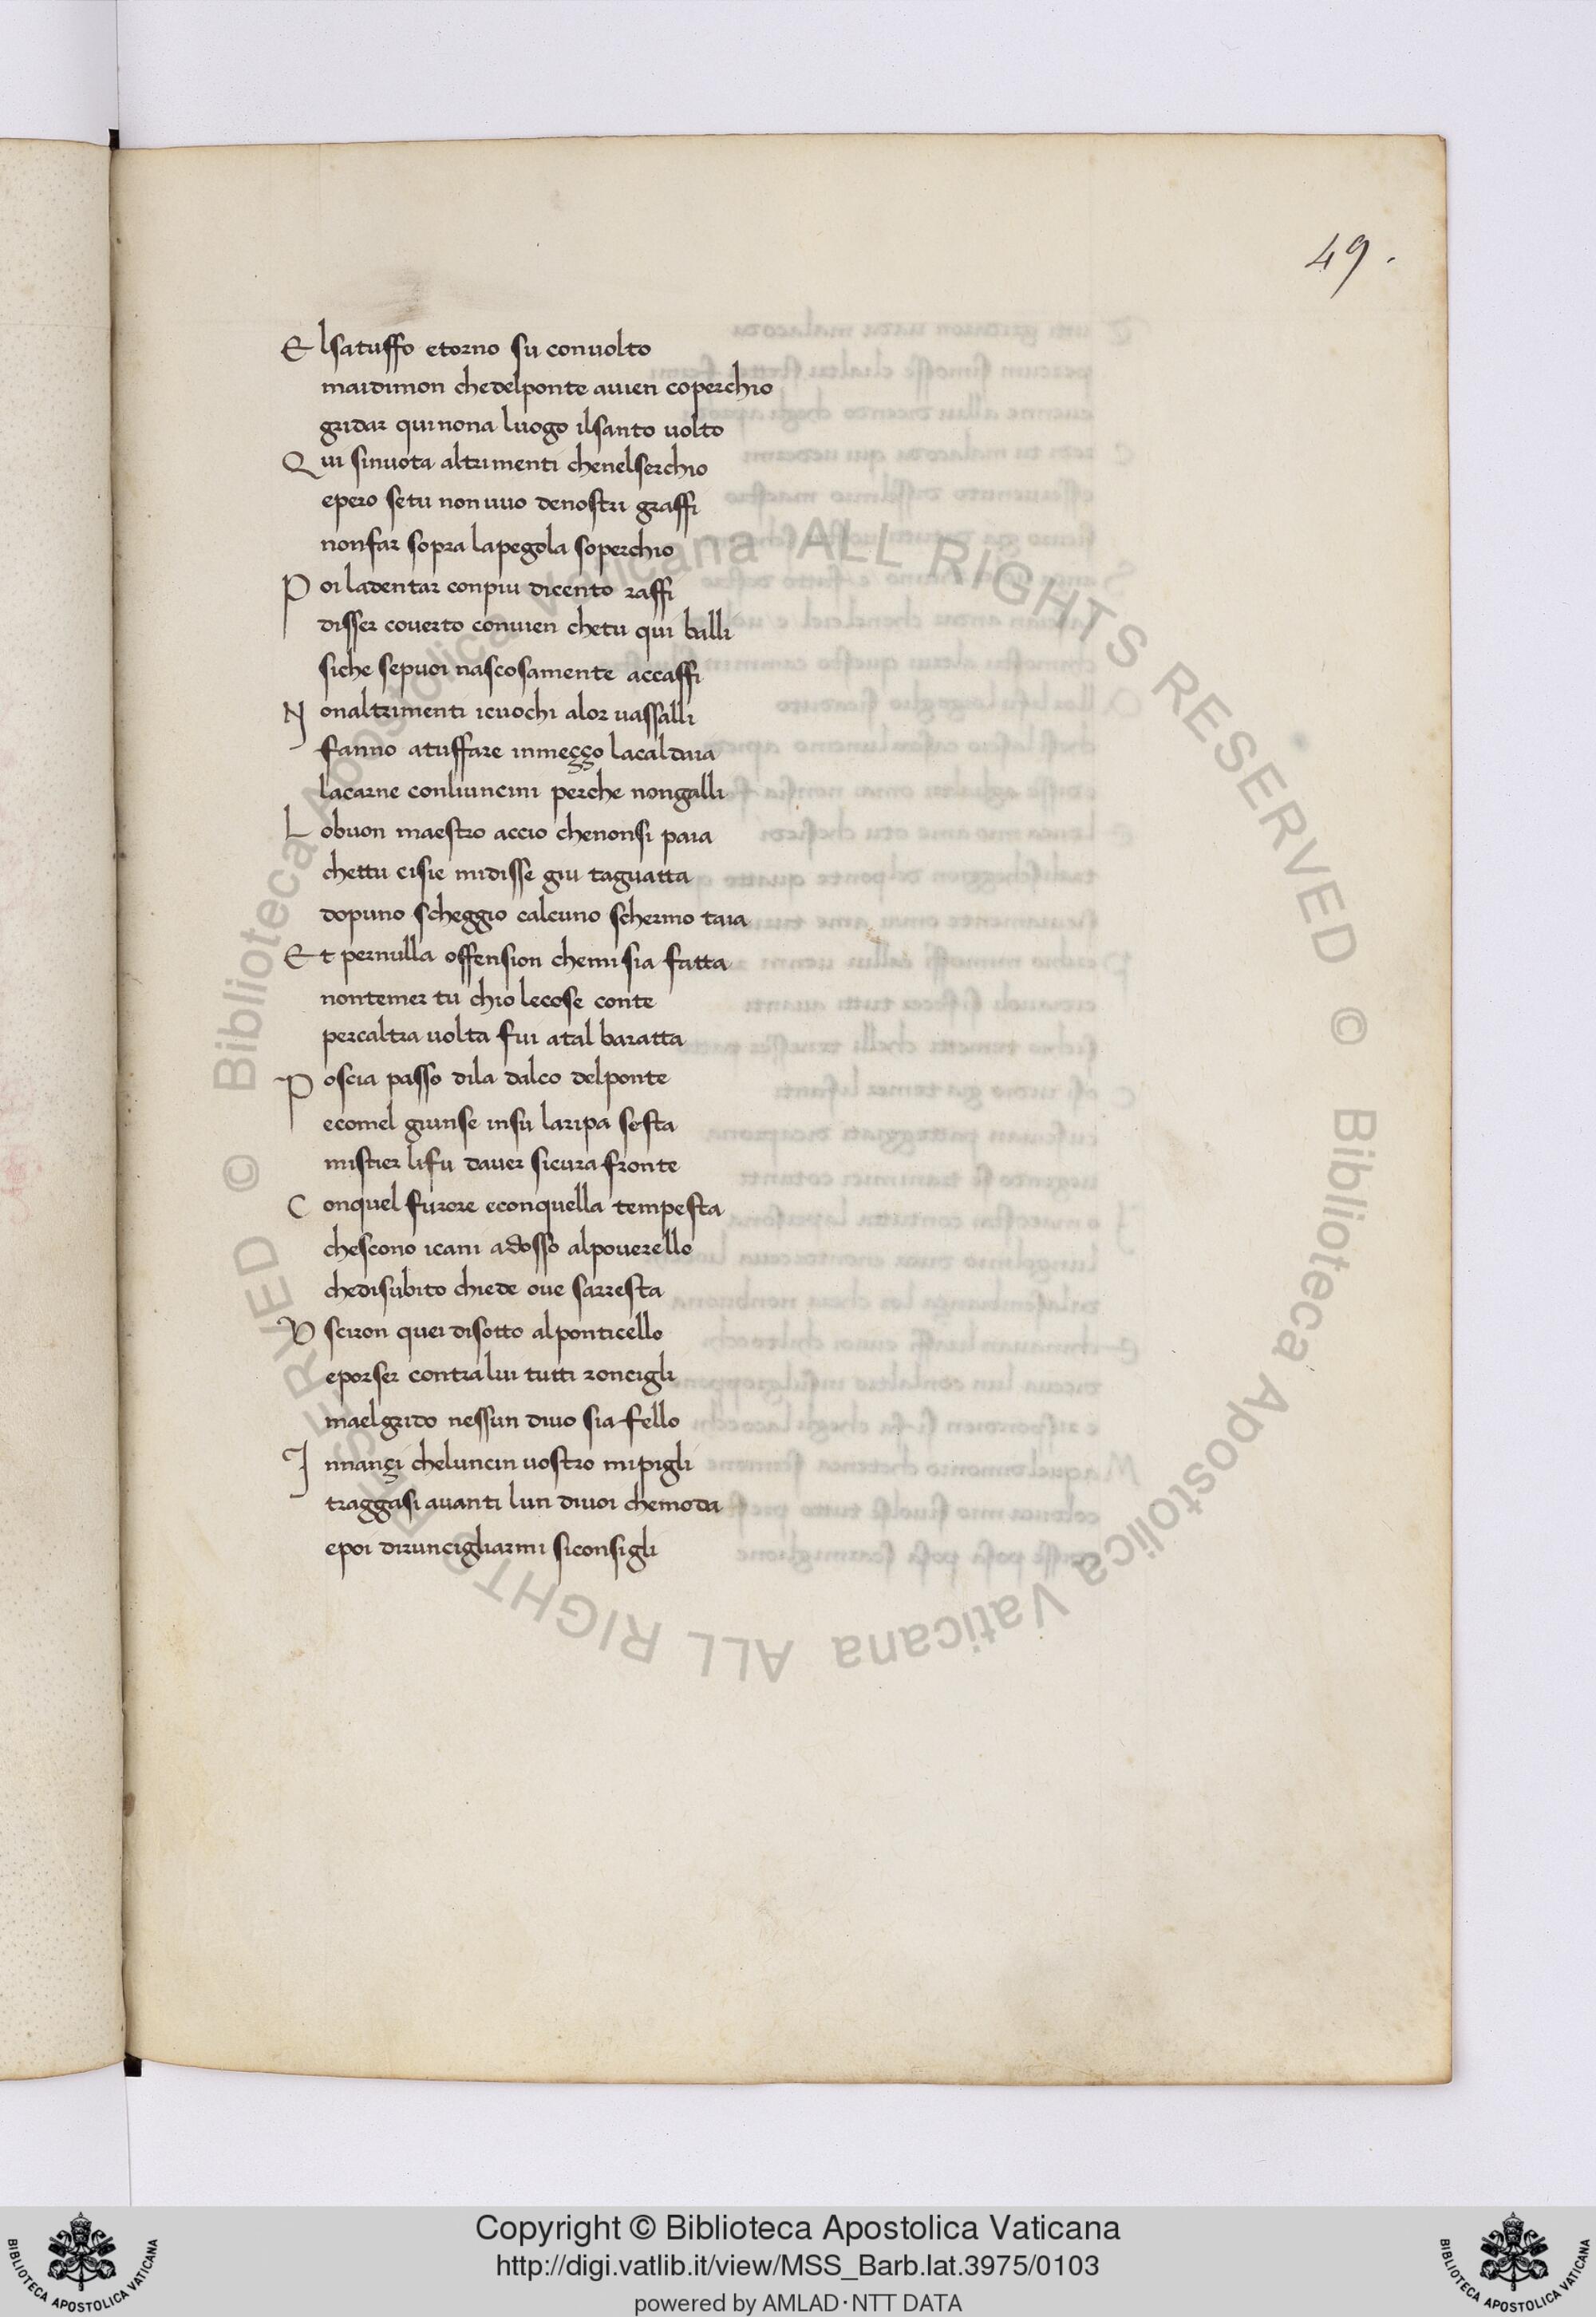 49.
E lsatuffo etorno su conuolto
maidimon chedelponte auien coperchio
gridar quinona luogo ilsanto uolto
Q ui sinuota altrimenti chenelserchio
epero setu non uuo denostri graffi
nonfar sopra lapegola soperchio
P oi ladentar conpiu dicento raffi
disser couerto conuien chetu qui balli
siche sepuoi nascosamente accaffi
N onaltrimenti icuochi alor uassalli
fanno atuffare inmeçço lacaldaia
lacarne conliuncini perche nongalli
L obuon maestro accio chenonsi paia
chettu cisie midisse giu taguatta
dopuno scheggio calcuno schermo taia
E t pernulla offension chemi sia fatta
nontemer tu chio lecose conte
percaltra uolta fui atal baratta
P oscia passo dila dalco delponte
ecomel giunse insu laripa sesta
mistier lifu dauer sicura fronte
C onquel furore econquella tempesta
chescono icani adosso alpouerello
chedisubito chiede oue sarresta
V sciron quei disotto alponticello
eporser contralui tutti roncigli
maelgrido nessun diuo sia fello
I nnançi cheluncin uostro mipigli
traggasi auanti lun diuoi chemoda
epoi diruncigliarmi siconsigli
© Biblioteca Apostolica Vaticana ALL RIGHTS RESERVED © Biblioteca Apostolica Vaticana ALL RIGHTS RESERVED
BIBLIOTECA APOSTOLICA VATICANA
Copyright © Biblioteca Apostolica Vaticana
http://digi.vatlib.it/view/MSS_Barb.lat.3975/0103
powered by AMLAD·NTT DATA
BIBLIOTECA APOSTOLICA VATICANA